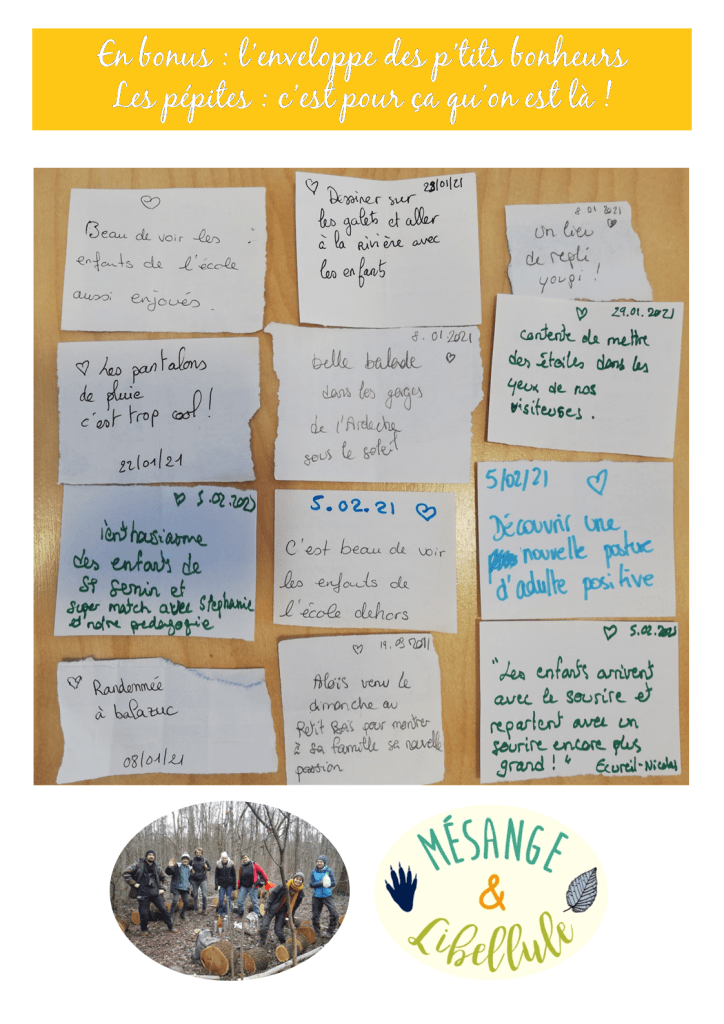 En bonus : l'enveloppe des p'tits bonheurs
Les pépites : c'est pour ça qu'on est là !
Beau de voir les
enfants de l'école
aussi enjoués.
29/01/21
Dessiner sur
les galets et aller
à la Rivière avec
les enfants
8.01.2021
Un lieu
de repli
youpi !
Les pantalons
de pluie
c'est trop cool !
22/01/21
8.01.2021
Belle balade
dans les gorges
de l'Ardèche
sous le soleil
29.01.2021
Contente de mettre
des Étoiles dans les
yeux de nos
visiteuses.
5.02.2021
l'enthousiasme
des enfants de
St Sernin et
super match avec Stéphanie
et notre pédagogie
5.02.21
C'est beau de voir
les enfants de
l'école dehors
5/02/21
Découvrir une
nouvelle posture
d'adulte positive
Randonnée
à balazuc
08/01/21
19.03.2021
Aloïs venu le
dimanche au
Petit Bois pour montrer
à sa famille sa nouvelle
passion
5.02.2021
"Les enfants arrivent
avec le sourire et
repartent avec un
sourire encore plus
grand ! "
Écureil-Nicolas
MÉSANGE
&
Libellule